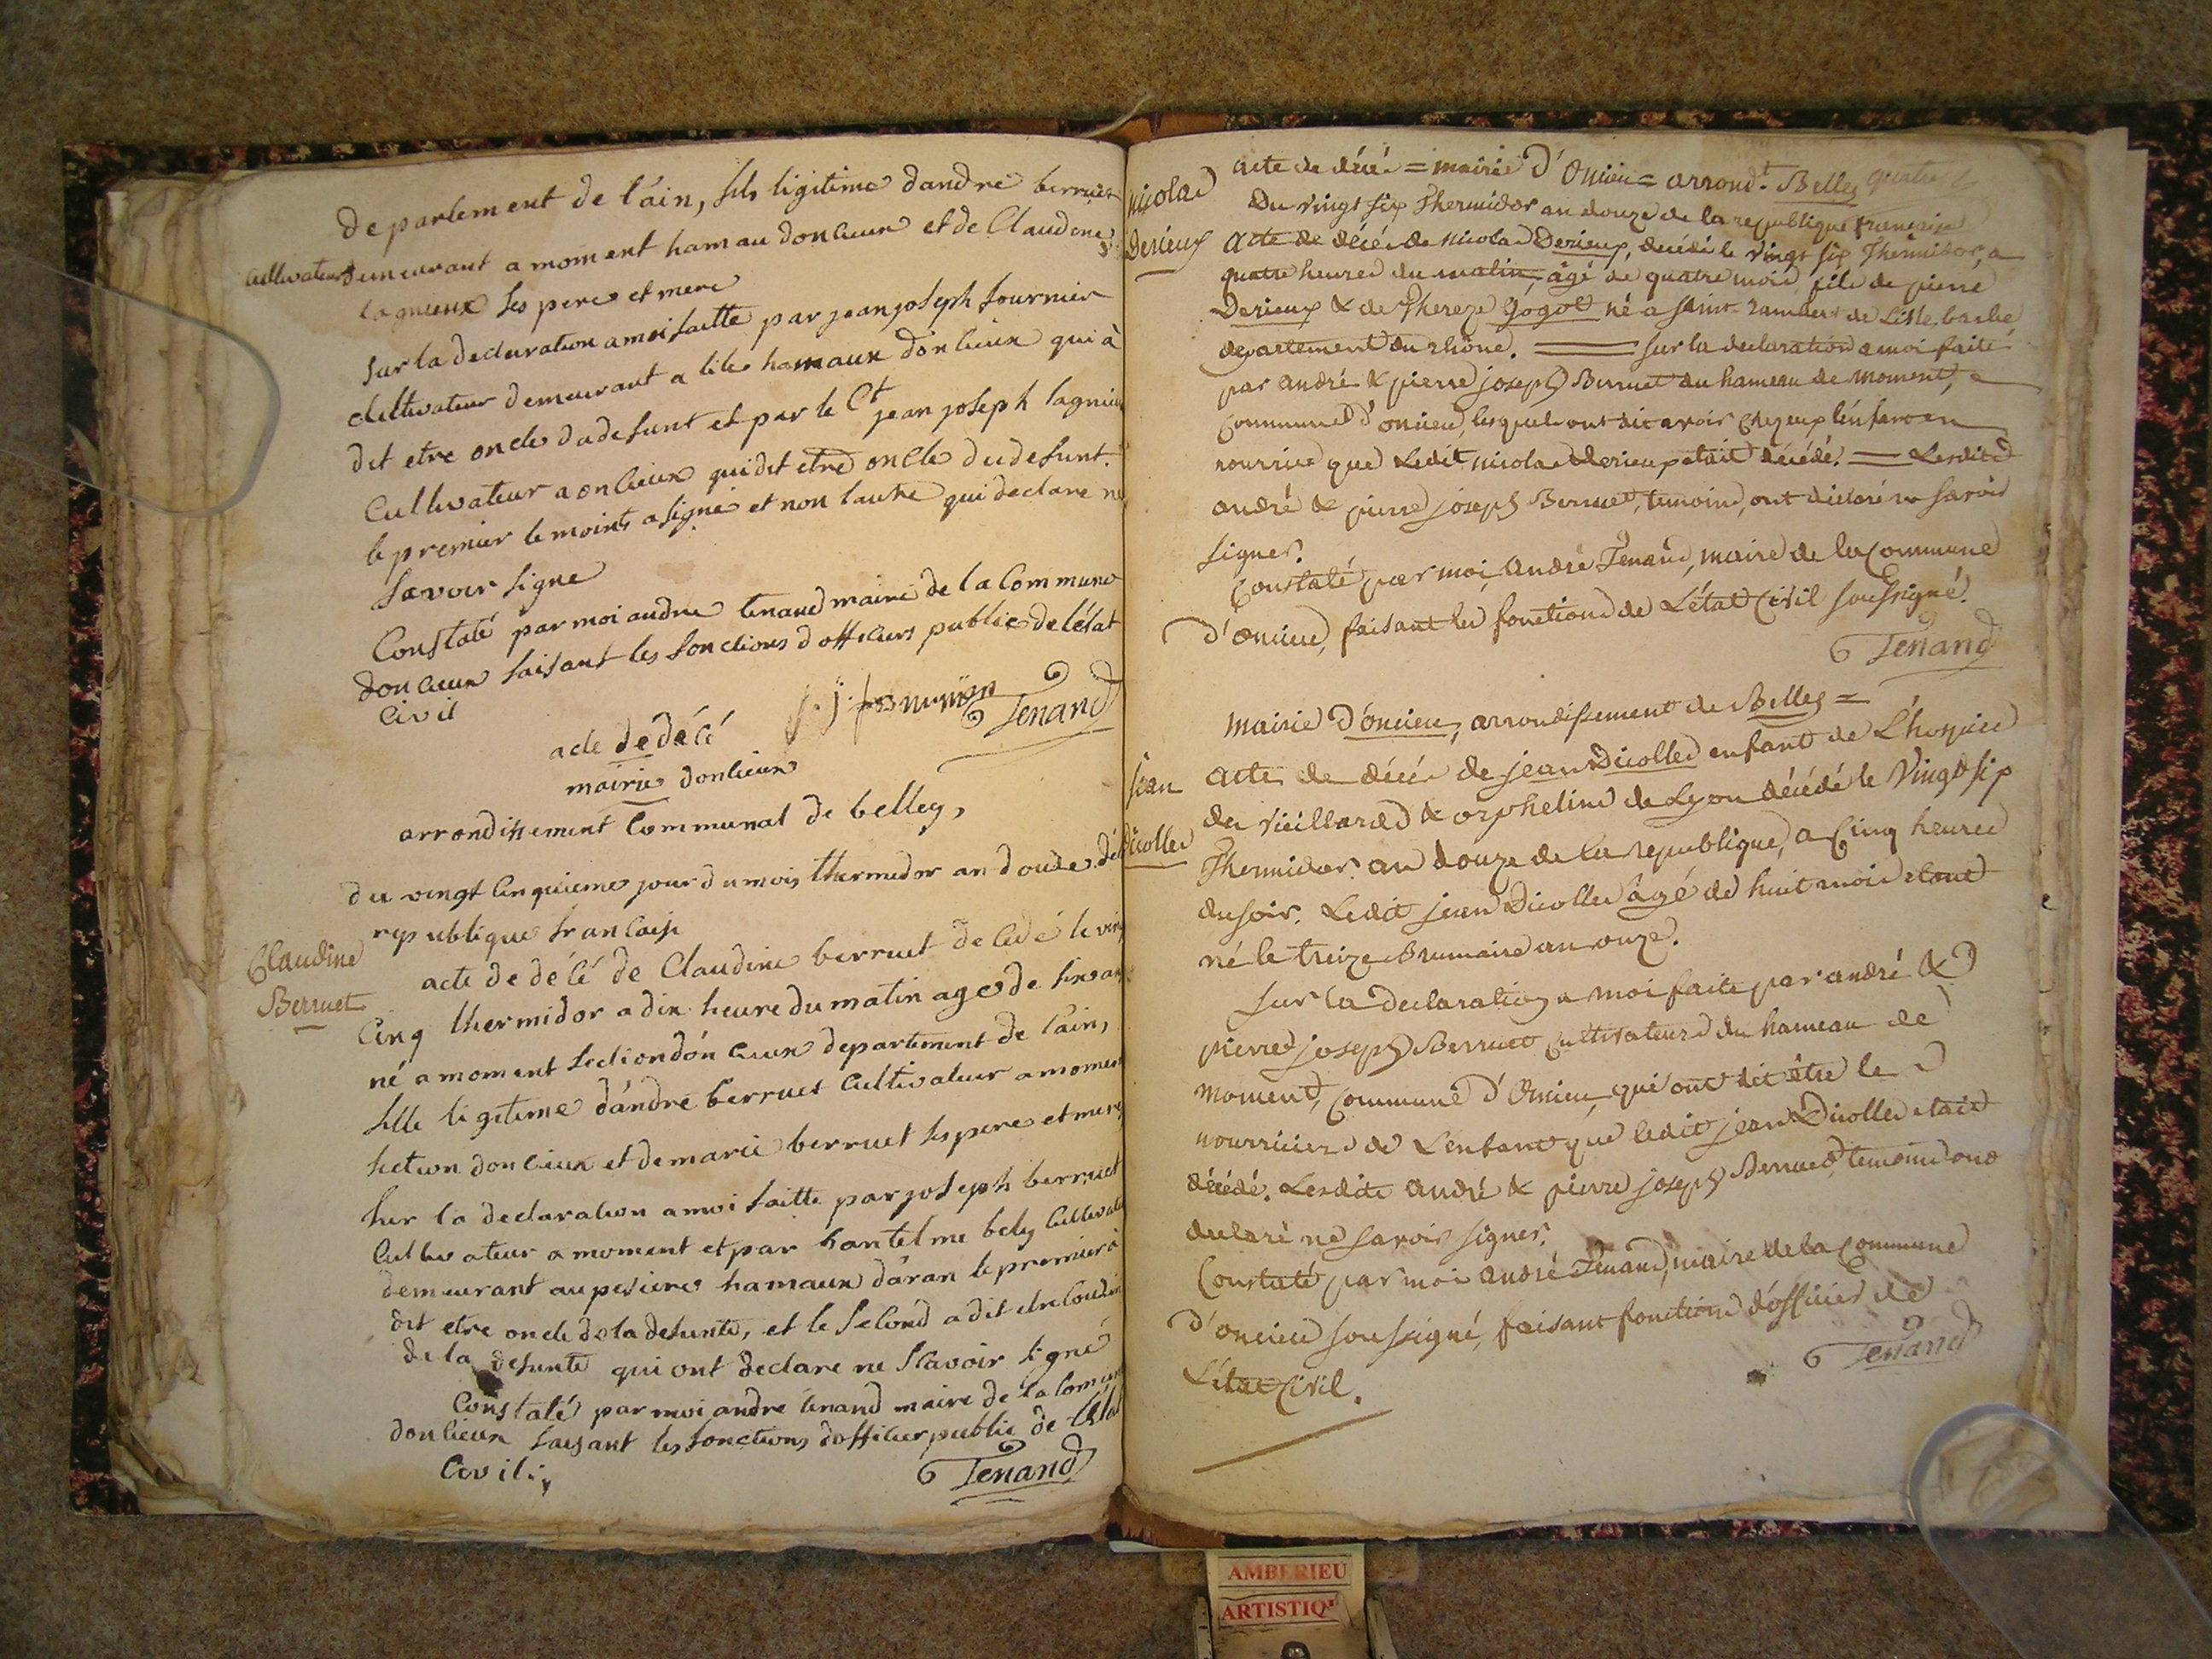 departement de l'ain, fils ligitime dandré berruet
cultivateur demeurant a moment hamau doncieux et de Claudine
lagnieux ses pere et mere
sur la declaration a moi faitte par jean joseph fournier
cultivateur demeurant a hamaux doncieux qui à
dit etre oncle dudefunt et par le Ct jean joseph lagnieu
Cultivateur a oncieux qui dit etre oncle dudefunt.
le premier temoints a signé et non lautre qui declare ne
savoir signe
Constaté par moi andre tenand maire de la Commune
doncieux faisant les fonctions dofficiers public de létat
Civil
Tenand
acte dé décé
mairie doncieux
arrondissement Communal de belley,
du vingt cinquieme jour du mois thermidor an douze de
republique francaise
Claudine
Berruet
acte de décé de Claudine berruet decedé le vin
Cinq thermidor a dix heure du matin age de six an
né a moment section dón cieux departement de l'ain,
fille ligitime dándré berruet Cultivateur a moment
section doncieux et de marie berruet ses pere et mere
sur la declaration a moi faitte par joseph berruet
Cultivateur a moment et par hantelme bely Cultivate
demeurant au hamaux dáran le premier à
dit etre oncle de la defunte, et le second a dit etre Cousin
de la defunte qui ont declare ne scavoir signé
Constaté par moi andré tenand maire de la Commun
doncieux faisant les fonctions dofficier public de létat
Civil
Tenand
nicolas
Derieux
acte de décé = mairie d'Oncieu = arrondt. Belley
Du vingt six Thermidor an douze de la republique francaise
Acte de décés de nicolas Derieux, décédé le vingt six Thermidor, a
quatre heures du matin, âgé de quatre mois, fils de pierre
Derieux & de Thereze Gogot né a saint-rambert de Lisle barbe
departement du rhône. = sur la declaration a moi faite
par andré & pierre joseph Berruet du hameau de moment,
commune d'oncieu, lesquels ont dit avoir chez eux l'enfant en
nourrice que Ledit nicolas derieux etait décédé. = Lesdits
andré & pierre joseph Berruet, temoins, ont déclaré ne savoir
signer.
Constaté par moi, André Tenand, maire de la Commune
d'oncieu, faisant les fonctions de L'état Civil soussigné.
Tenand
mairie d'oncieu, arrondissement de Belley =
jean
Dicolles
acte de décés de jean Dicolles enfant de L'hospice
des vieillards & orphelins de Lyon décédé le vingt six
Thermidor an douze de la republique, a Cinq heures
du soir. Ledit jean Dicolles âgé de huit mois etant
né le treize Brumaire an onze.
sur la declaration a moi faite par andré &
pierre joseph Berruet cultivateurs du hameau de
moment, commune d'Oncieu qui ont dit être les
nourriciers de L'enfant que ledit jean Dicolles etait
décédé. Lesdits andré & pierre joseph Berruet, temoins ont
declaré ne savoir signer.
Constaté par moi andré Tenand, maire de la Commune
d'oncieu soussigné, faisant fonctions d'officier de
L'état Civil.
Tenand
AMBERIEU
ARTISTIQ